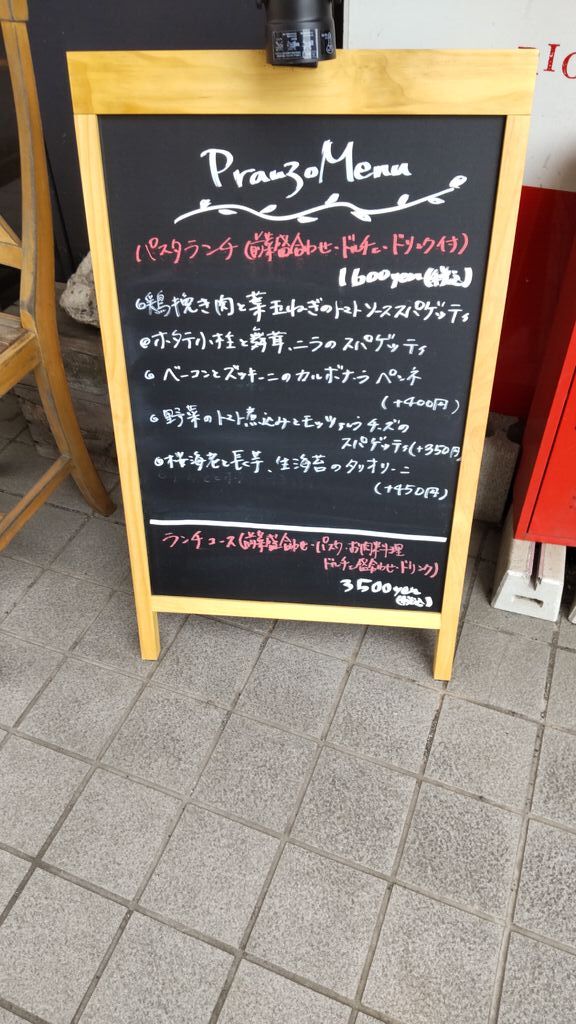 Pranzo Menu
パスタランチ(前菜盛合わせ・ドルチェ・ドリンク付)
1600yen(税込)
鶏挽き肉と葉玉ねぎのトマトソーススパゲッティ
ホタテ小柱と舞茸、ニラのスパゲッティ
ベーコンとズッキーニのカルボナーラ ペンネ
(+400円)
野菜のトマト煮込みとモッツァレラチーズの
スパゲッティ(+350円)
桜海老と長芋、生海苔のタリオリーニ
(+450円)
ランチコース(前菜盛合わせ・パスタ・お肉料理
ドルチェ盛合わせ・ドリンク)
3500yen
(税込)